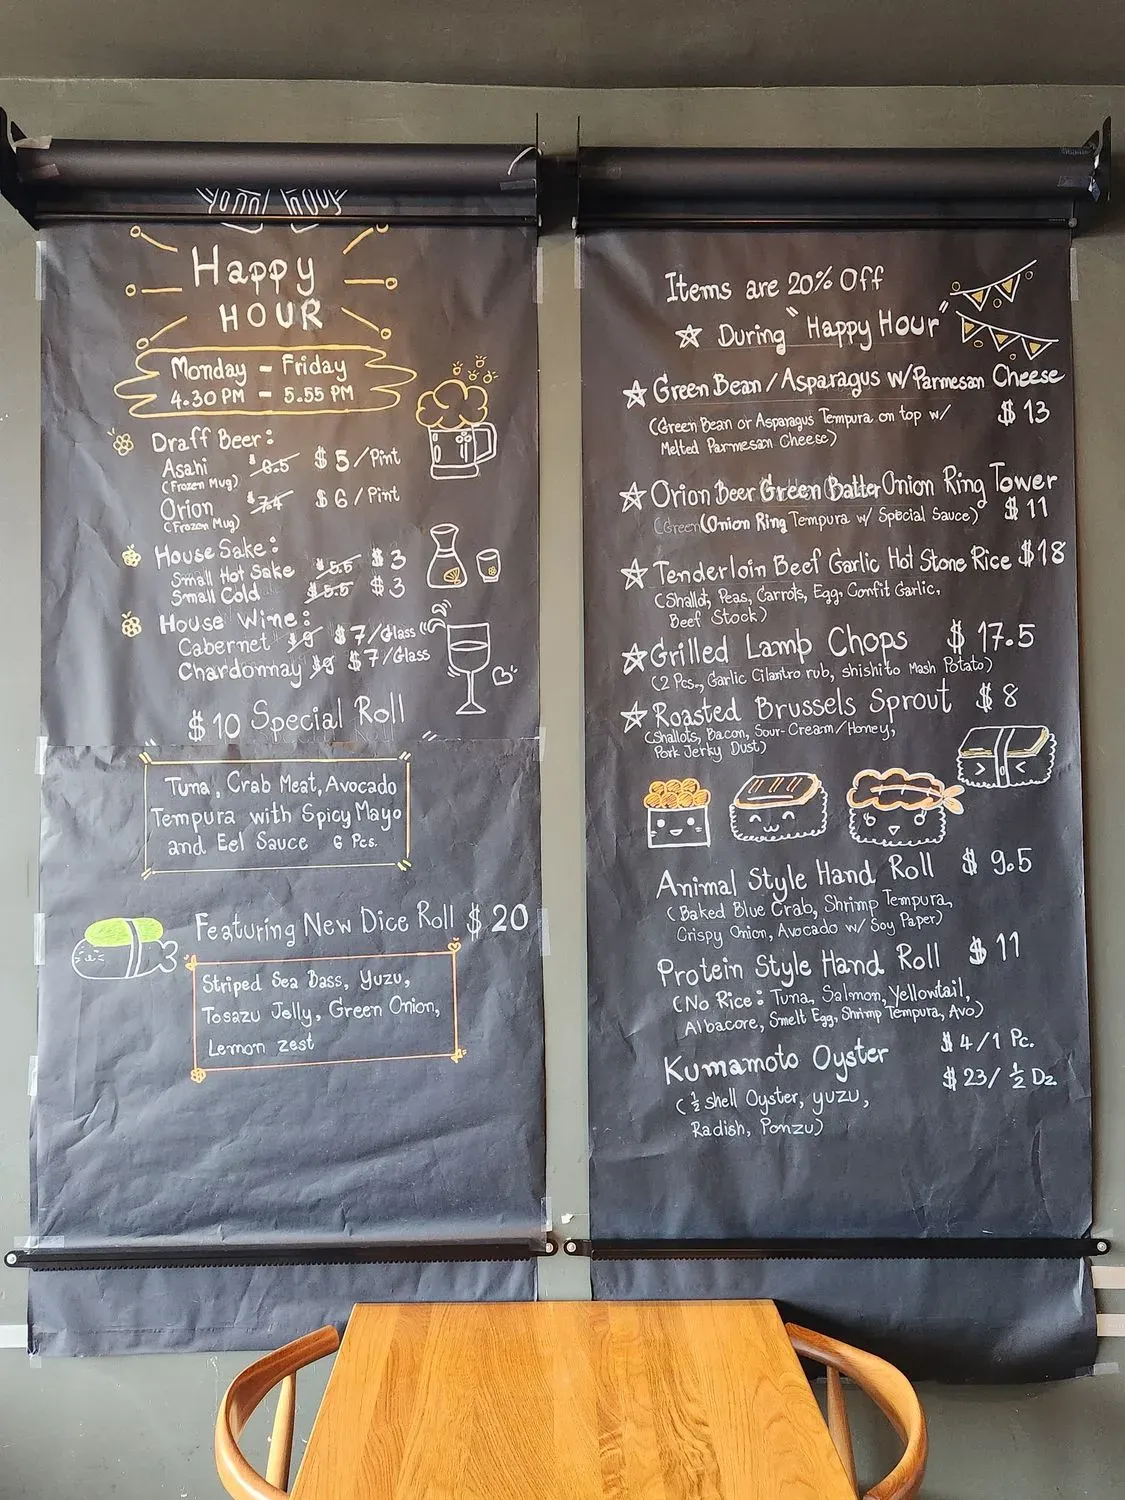 Happy
HOUR
Monday – Friday
4.30 PM – 5.55 PM
Draff Beer:
Asahi $6.5 $5/Pint
(Frozen Mug)
Orion $7.4 $6/Pint
(Frozen Mug)
House Sake:
Small Hot Sake $5.5 $3
Small Cold $5.5 $3
House Wine:
Cabernet $9 $7/Glass
Chardonnay $9 $7/Glass
$10 Special Roll
Tuna, Crab Meat, Avocado
Tempura with Spicy Mayo
and Eel Sauce 6 Pcs.
Featuring New Dice Roll $20
Striped Sea Bass, Yuzu,
Tosazu Jelly, Green Onion,
Lemon zest
Items are 20% Off
During "Happy Hour"
Green Bean / Asparagus w/Parmesan Cheese
$13
(Green Bean or Asparagus Tempura on top w/
Melted Parmesan Cheese)
Orion Beer Batter Onion Ring Tower
$11
(Onion Ring Tempura w/ Special Sauce)
Tenderloin Beef Garlic Hot Stone Rice $18
(Shallot, Peas, Carrots, Egg, Confit Garlic,
Beef Stock)
Grilled Lamp Chops $17.5
(2 Pcs., Garlic Cilantro rub, shishito Mash Potato)
Roasted Brussels Sprout $8
(Shallots, Bacon, Sour-Cream/Honey,
Pork Jerky Dust)
Animal Style Hand Roll $9.5
(Baked Blue Crab, Shrimp Tempura,
Crispy Onion, Avocado w/ Soy Paper)
Protein Style Hand Roll $11
(No Rice: Tuna, Salmon, Yellowtail,
Albacore, Smelt Egg, Shrimp Tempura, Avo)
Kumamoto Oyster $4/1 Pc.
$23/ ½ Dz.
(½ shell Oyster, yuzu,
Radish, Ponzu)